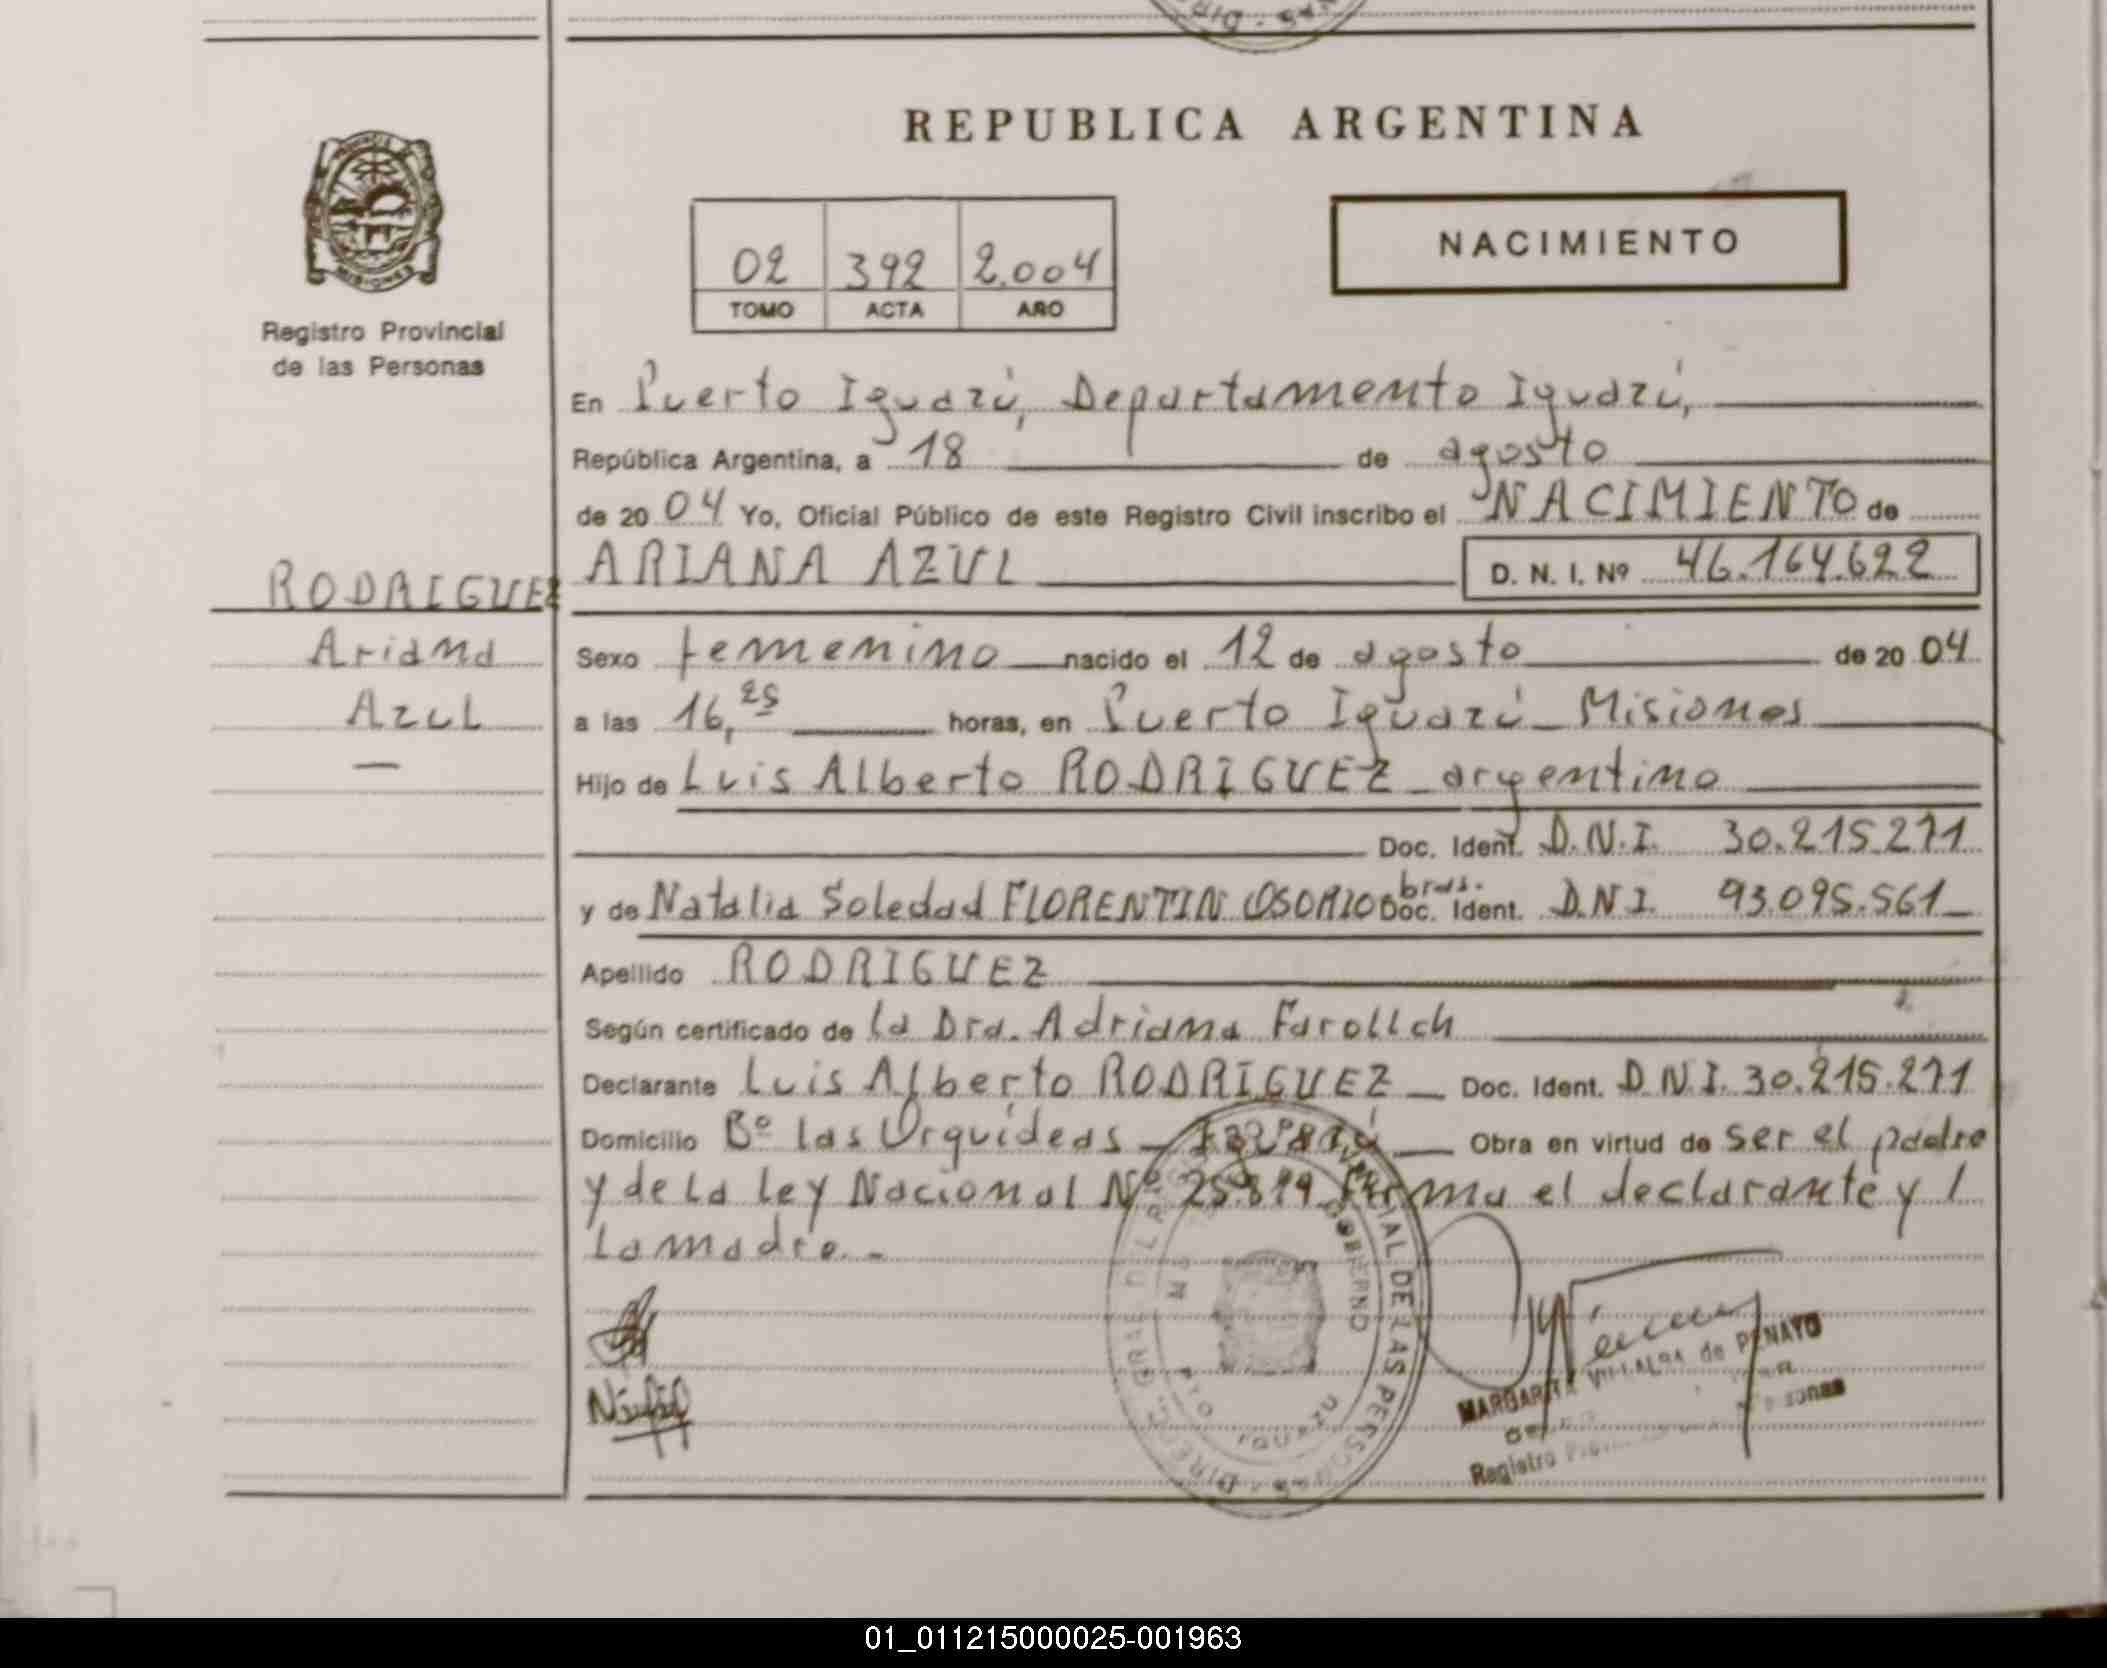 REPUBLICA ARGENTINA
NACIMIENTO
02 392 2.004
TOMO ACTA AÑO
MISIONES
Registro Provincial
de las Personas
En Puerto Iguazú, Departamento Iguazú,
República Argentina, a 18 de agosto
de 2004 Yo, Oficial Público de este Registro Civil inscribo el NACIMIENTO de
ARIANA AZUL D. N. I. Nº 46.164.622
RODRIGUEZ
Ariana
Azul
Sexo femenino nacido el 12 de agosto de 2004
a las 16,25 horas, en Puerto Iguazú - Misiones
Hijo de Luis Alberto RODRIGUEZ - argentino
Doc. Ident. D.N.I. 30.215.271
y de Natalia Soledad FLORENTIN OSORIO bras. Doc. Ident. D.N.I. 93.095.561
Apellido RODRIGUEZ
Según certificado de la Dra. Adriana
Declarante Luis Alberto RODRIGUEZ - Doc. Ident. D.N.I. 30.215.271
Domicilio Bº las Urquídeas - Obra en virtud de ser el padre
y de la ley Nacional Nº firma el declarante y
la madre.-
PROVINCIAL DE LAS PERSONAS
GOBIERNO
MARGARITA VILLALBA de PENAYO
Registro
01_011215000025-001963